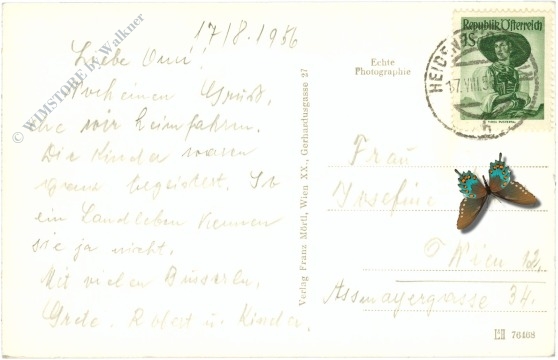 17/8.1956
Liebe Omi!
Noch einen Gruß,
ehe wir heimfahren.
Die Kinder waren
ganz begeistert. So
ein Landleben kennen
sie ja nicht.
Mit vielen Busserln,
Grete, Robert u. Kinder.
© WIMSTORE D. Walkner
Verlag Franz Mörtl, Wien XX., Gerhardusgasse 27
Echte
Photographie
Republik Österreich
1S
17.VIII.5
Frau
Josefine
Wien 12.
Assmayergasse 34.
76468